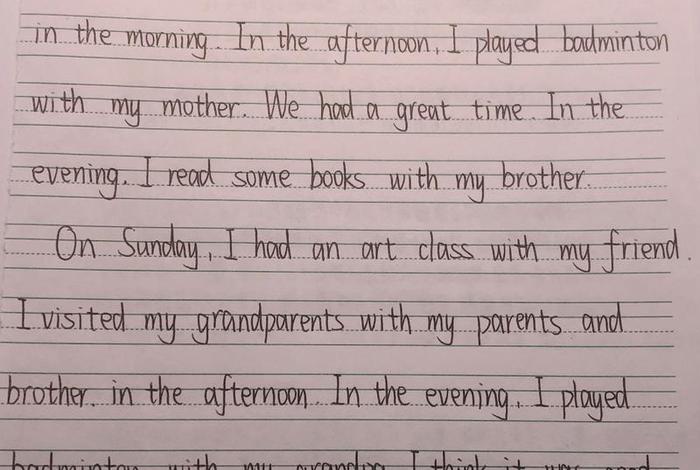 in the morning. In the afternoon, I played badminton
with my mother. We had a great time. In the
evening, I read some books with my brother.
On Sunday, I had an art class with my friend.
I visited my grandparents with my parents and
brother. in the afternoon. In the evening, I played
badminton with my grandpa. I think it was good